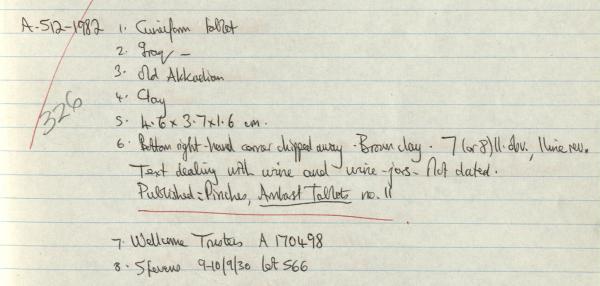 A-512-1982 1. Cuneiform tablet
2. Iraq -
3. Old Akkadian
326
4. Clay
5. 4.6 x 3.7 x 1.6 cm.
6. Bottom right-hand corner chipped away. Brown clay. 7 (or 8) ll. obv., 1 line rev.
Text dealing with wine and wine-jars. Not dated.
Published: Pinches, Amherst Tablets no. 11
7. Wellcome Trustees A 170498
8. Stevens 9-10/9/30 lot 566